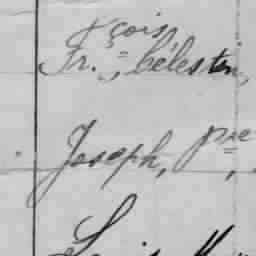 çois
Fr. =, Célestin,
Joseph, Pre =,